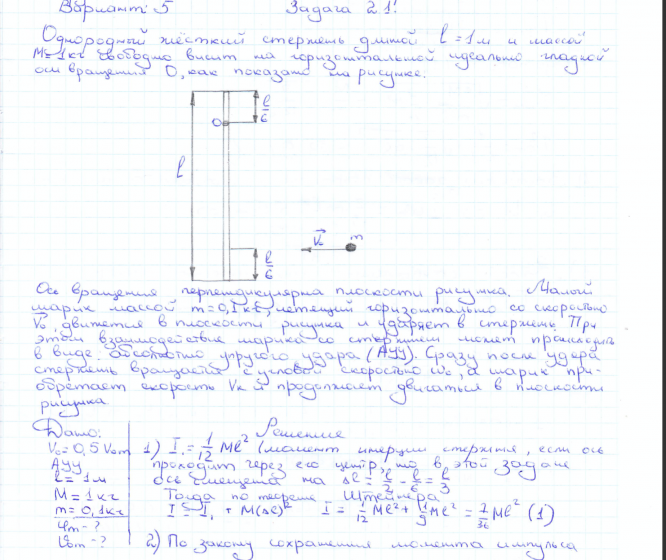 Вариант: 5 Задача 2.1!
Однородный жёсткий стержень длиной l = 1м и массой
M=1кг свободно висит на горизонтальной идеально гладкой
оси вращения O, как показано на рисунке.
l/6
O
l
V₀ m
l/6
Ось вращения перпендикулярна плоскости рисунка. Малый
шарик массой m=0,1кг, летящий горизонтально со скоростью
V₀, движется в плоскости рисунка и ударяет в стержень. При
этом взаимодействие шарика со стержнем может происходить
в виде: абсолютно упругого удара (АУУ). Сразу после удара
стержень вращается с угловой скоростью ω₀, а шарик при-
обретает скорость Vк и продолжает двигаться в плоскости
рисунка
Дано: Решение
V₀=0,5 V₀m
АУУ
l=1м
M=1кг
m=0,1кг
φm-?
V₀m-?
1) I₁ = 1/12 Ml² (момент инерции стержня, если ось
проходит через его центр, но в этой задаче
ось смещена на Δl = l/2 - l/6 = l/3
Тогда по теореме Штейнера
I = I₁ + M(Δl)² I = 1/12 Ml² + 1/9 Ml² = 7/36 Ml² (1)
2) По закону сохранения момента импульса